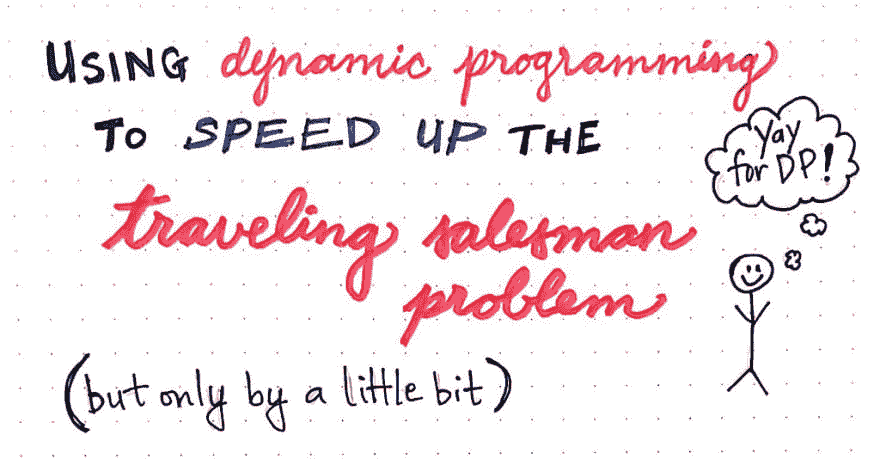 USING dynamic programming
TO SPEED UP THE
traveling salesman
problem
(but only by a little bit)
yay
for DP!